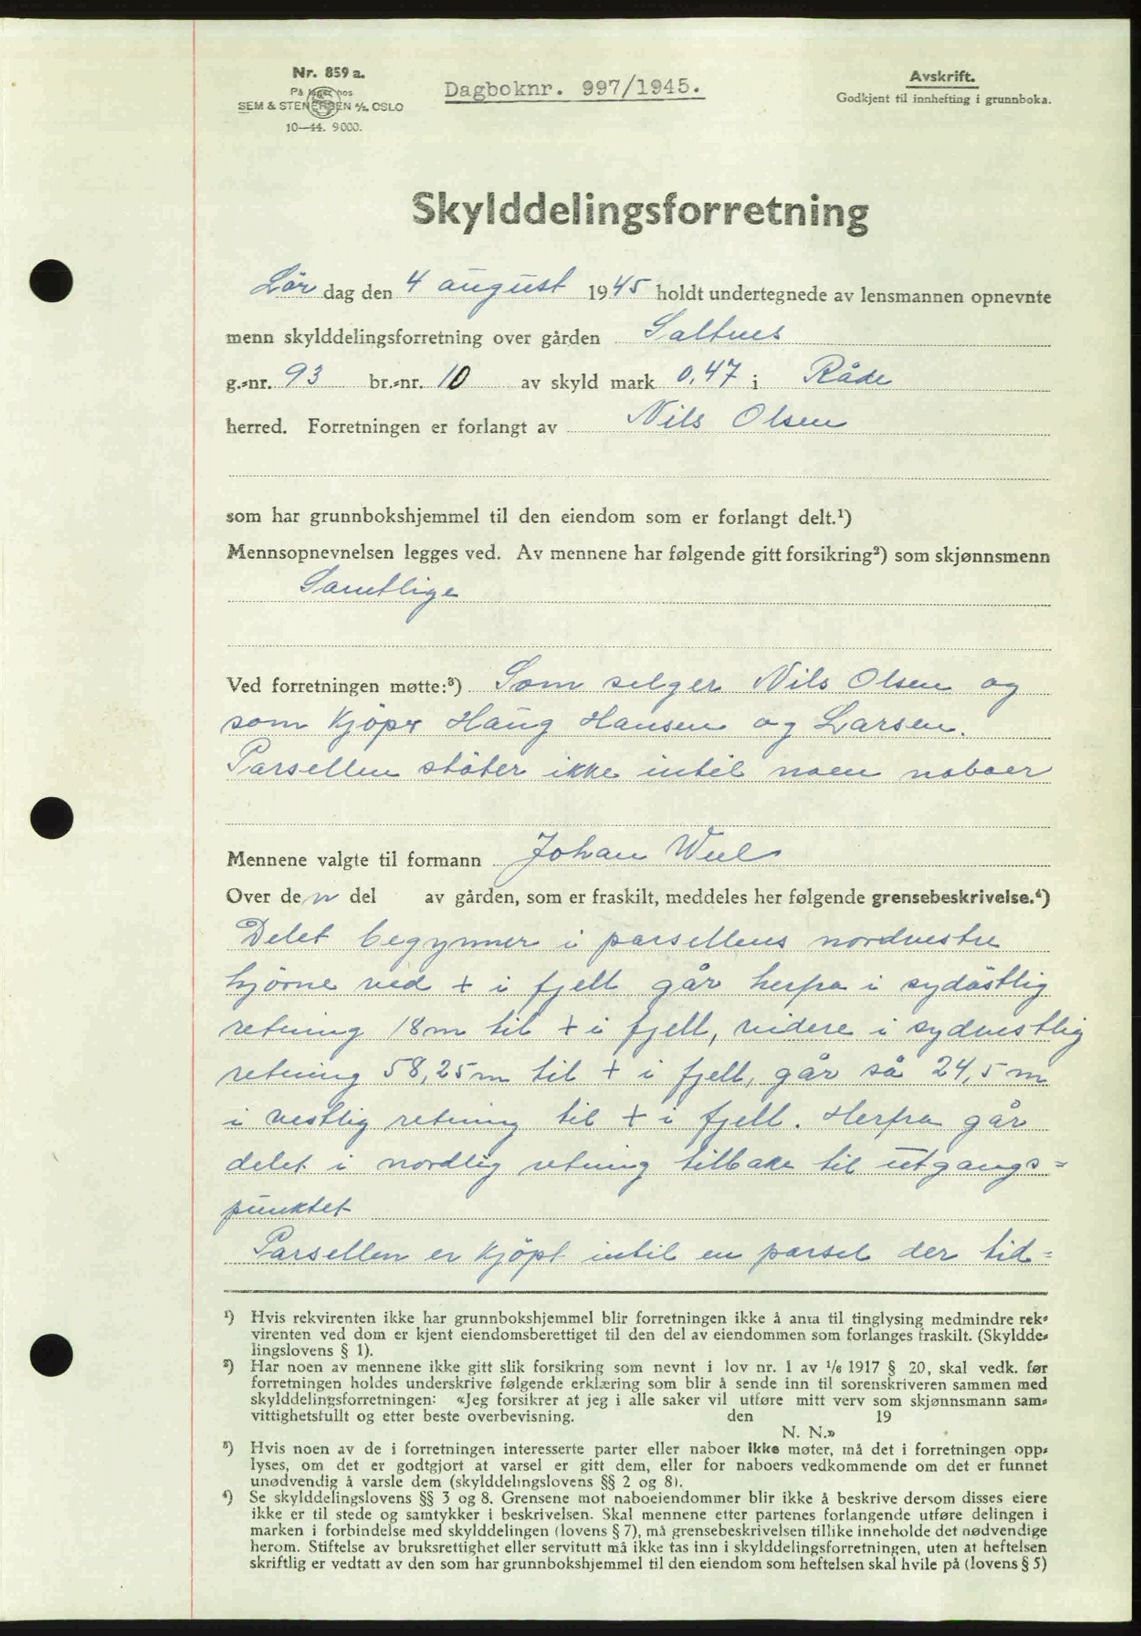 Nr. 859 a.
På lager hos
SEM & STENERSEN A/S, OSLO
10—44. 9000.
Dagboknr. 997/1945.
Avskrift.
Godkjent til innhefting i grunnboka.
Skylddelingsforretning
Lör dag den 4 august 1945 holdt undertegnede av lensmannen opnevnte
menn skylddelingsforretning over gården Saltnes
g.-nr. 93 br.-nr. 10 av skyld mark 0,47 i Råde
herred. Forretningen er forlangt av Nils Olsen
som har grunnbokshjemmel til den eiendom som er forlangt delt.¹)
Mennsopnevnelsen legges ved. Av mennene har følgende gitt forsikring²) som skjønnsmenn
Samtlige
Ved forretningen møtte:³) Som selger Nils Olsen og
som kjöper Haug Hansen og Larsen.
Parsellen stöter ikke intil noen naboer
Mennene valgte til formann Johan Wiel
Over den del av gården, som er fraskilt, meddeles her følgende grensebeskrivelse.⁴)
Delet begynner i parsellens nordvestre
hjörne ved + i fjell går herfra i sydöstlig
retning 18 m til + i fjell, videre i sydvestlig
retning 58,25 m til + i fjell, går så 24,5 m
i vestlig retning til + i fjell. Herfra går
delet i nordlig retning tilbake til utgangs=
punktet
Parsellen er kjöpt intil en parsel der tid=
¹) Hvis rekvirenten ikke har grunnbokshjemmel blir forretningen ikke å anta til tinglysing medmindre rek-
virenten ved dom er kjent eiendomsberettiget til den del av eiendommen som forlanges fraskilt. (Skyldde-
lingslovens § 1).
²) Har noen av mennene ikke gitt slik forsikring som nevnt i lov nr. 1 av 1/6 1917 § 20, skal vedk. før
forretningen holdes underskrive følgende erklæring som blir å sende inn til sorenskriveren sammen med
skylddelingsforretningen: «Jeg forsikrer at jeg i alle saker vil utføre mitt verv som skjønnsmann sam-
vittighetsfullt og etter beste overbevisning. den 19
N. N.»
³) Hvis noen av de i forretningen interesserte parter eller naboer ikke møter, må det i forretningen opp-
lyses, om det er godtgjort at varsel er gitt dem, eller for naboers vedkommende om det er funnet
unødvendig å varsle dem (skylddelingslovens §§ 2 og 8).
⁴) Se skylddelingslovens §§ 3 og 8. Grensene mot naboeiendommer blir ikke å beskrive dersom disses eiere
ikke er til stede og samtykker i beskrivelsen. Skal mennene etter partenes forlangende utføre delingen i
marken i forbindelse med skylddelingen (lovens § 7), må grensebeskrivelsen tillike inneholde det nødvendige
herom. Stiftelse av bruksrettighet eller servitutt må ikke tas inn i skylddelingsforretningen, uten at heftelsen
skriftlig er vedtatt av den som har grunnbokshjemmel til den eiendom som heftelsen skal hvile på (lovens § 5)